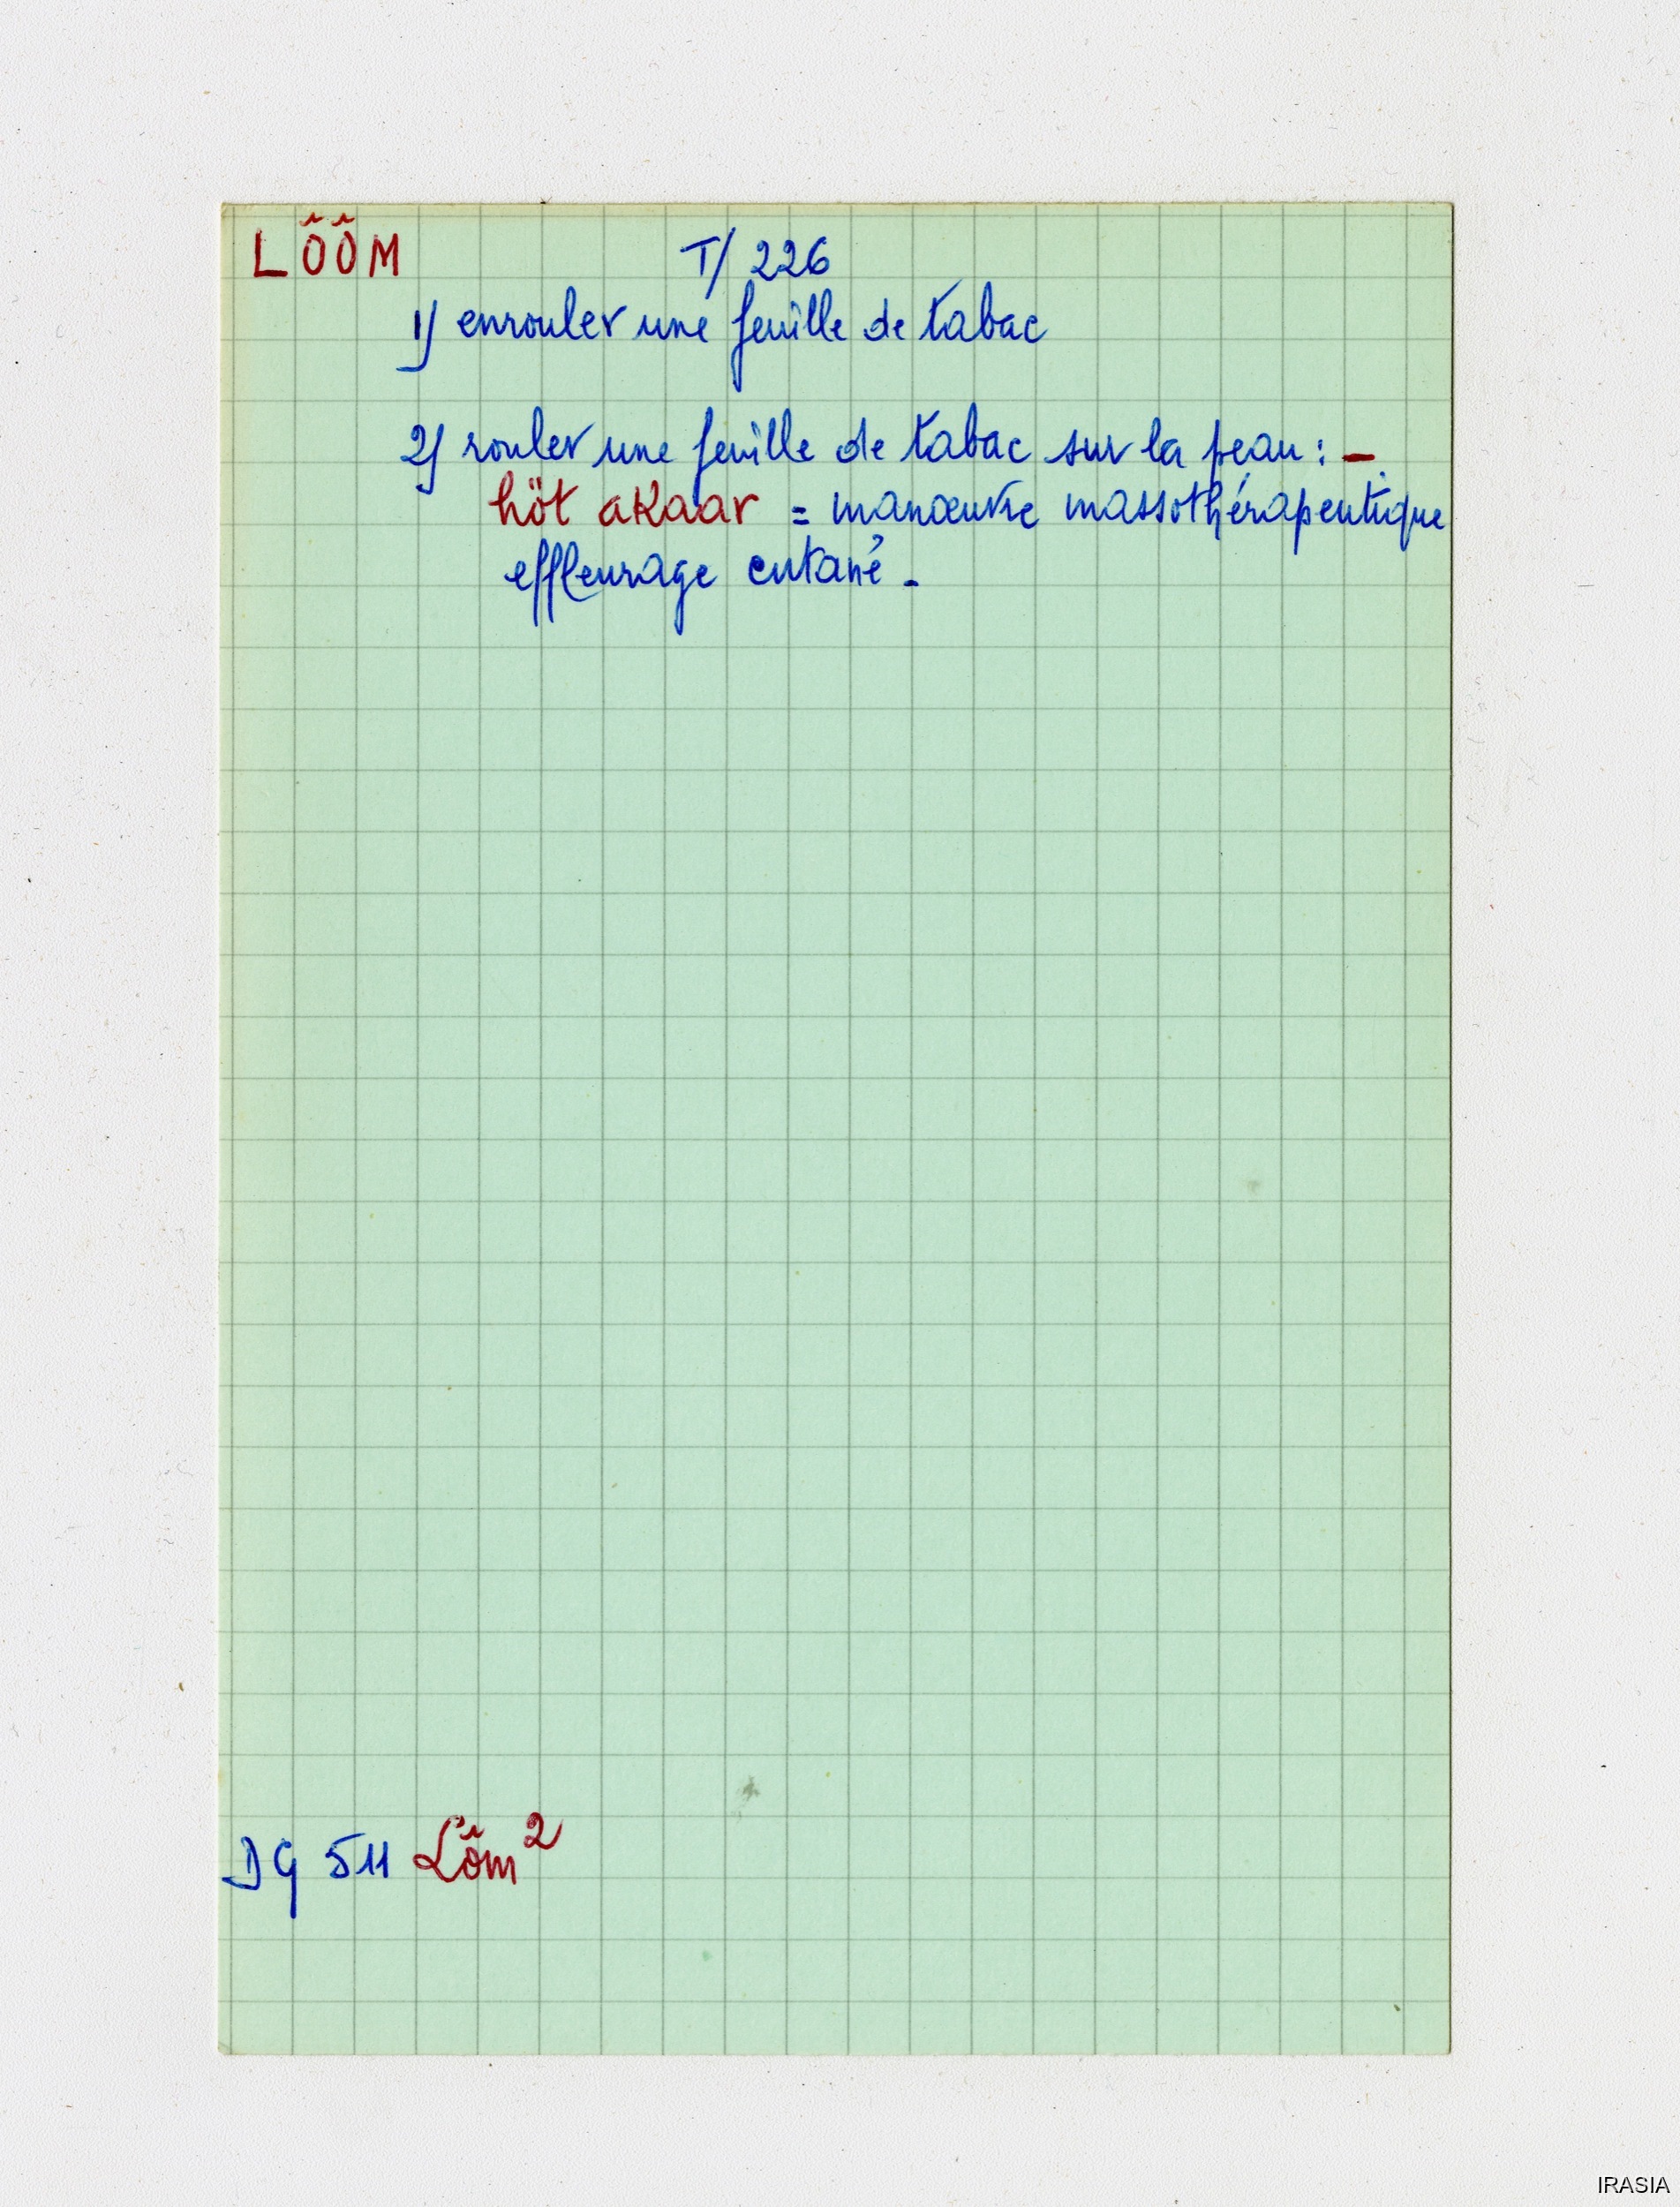 LÔÔM T/ 226
1) enrouler une feuille de tabac
2) rouler une feuille de tabac sur la peau : –
höt akaar = manœuvre massothérapeutique
effleurage cutané -
DG 511 Lôm²
IRASIA